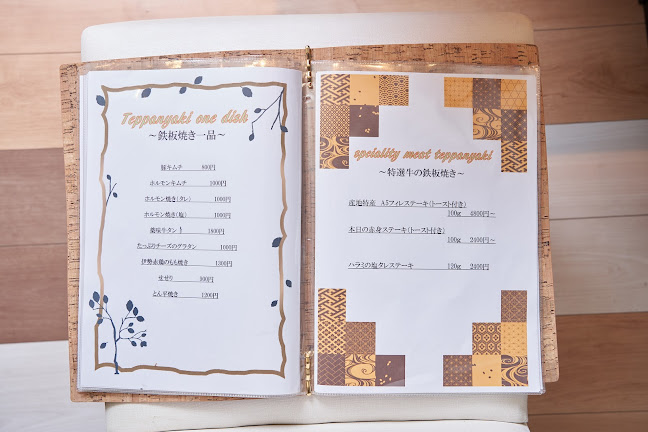 Teppanyaki one dish
～鉄板焼き一品～
豚キムチ 800円
ホルモンキムチ 1000円
ホルモン焼き(タレ) 1000円
ホルモン焼き(塩) 1000円
薬味牛タン 1800円
たっぷりチーズのグラタン 1000円
伊勢赤鶏のもも焼き 1300円
せせり 900円
とん平焼き 1200円
speciality meat teppanyaki
～特選牛の鉄板焼き～
産地特産 A5フィレステーキ(トースト付き)
100g 4800円～
本日の赤身ステーキ(トースト付き)
100g 2400円～
ハラミの塩タレステーキ 120g 2400円